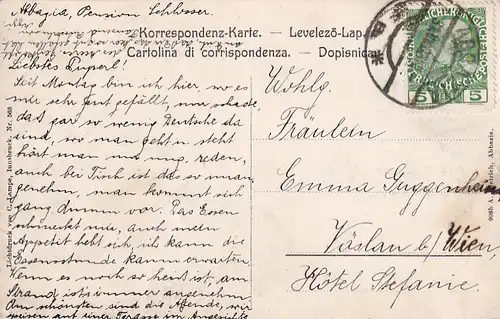 Abbazia, Pension Schlosser.
Korrespondenz-Karte. — Levelező-Lap.
Cartolina di corrispondenza. — Dopisnica
Liebstes Puperl!
Seit Montag bin ich hier, wo es
mir sehr gut gefällt, nur schade,
dass gar so wenig Deutsche da
sind, wo man geht u. steht
hört man nur ung. reden,
auch bei Tisch ist das so unan-
genehm, man kommt sich
ganz dumm vor. Das Essen
schmeckt mir, auch mein
Appetit hebt sich, ich kann die
Essensstunde kaum erwarten.
Wenn es noch so heiss ist, am
Strand ist's immer angenehm.
Am schönsten sind die Abende, wir
auf einer Terasse im Angesichte
Wohlg.
Fräulein
Emma Guggenheim
Vöslau b/ Wien,
Hôtel Stefanie.
5 5
Lichtdruck von C. Lampe, Innsbruck. Nr. 568
Abbazia.